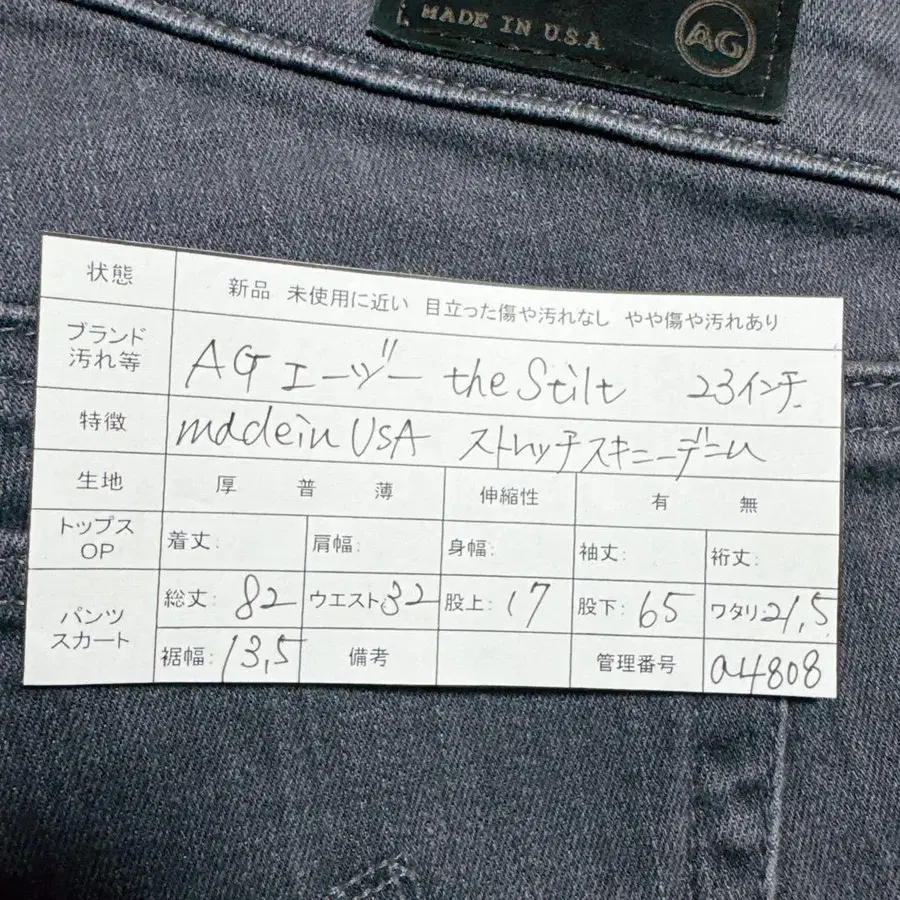 MADE IN U.S.A.
AG
状態 新品 未使用に近い 目立った傷や汚れなし やや傷や汚れあり
ブランド 汚れ等 AG エージー the Stilt 23インチ
特徴 madein USA ストレッチスキニーデニム
生地 厚 普 薄 伸縮性 有 無
トップス OP 着丈: 肩幅: 身幅: 袖丈: 裄丈:
パンツ スカート 総丈: 82 ウエスト: 32 股上: 17 股下: 65 ワタリ: 21,5
裾幅: 13,5 備考 管理番号 a4808